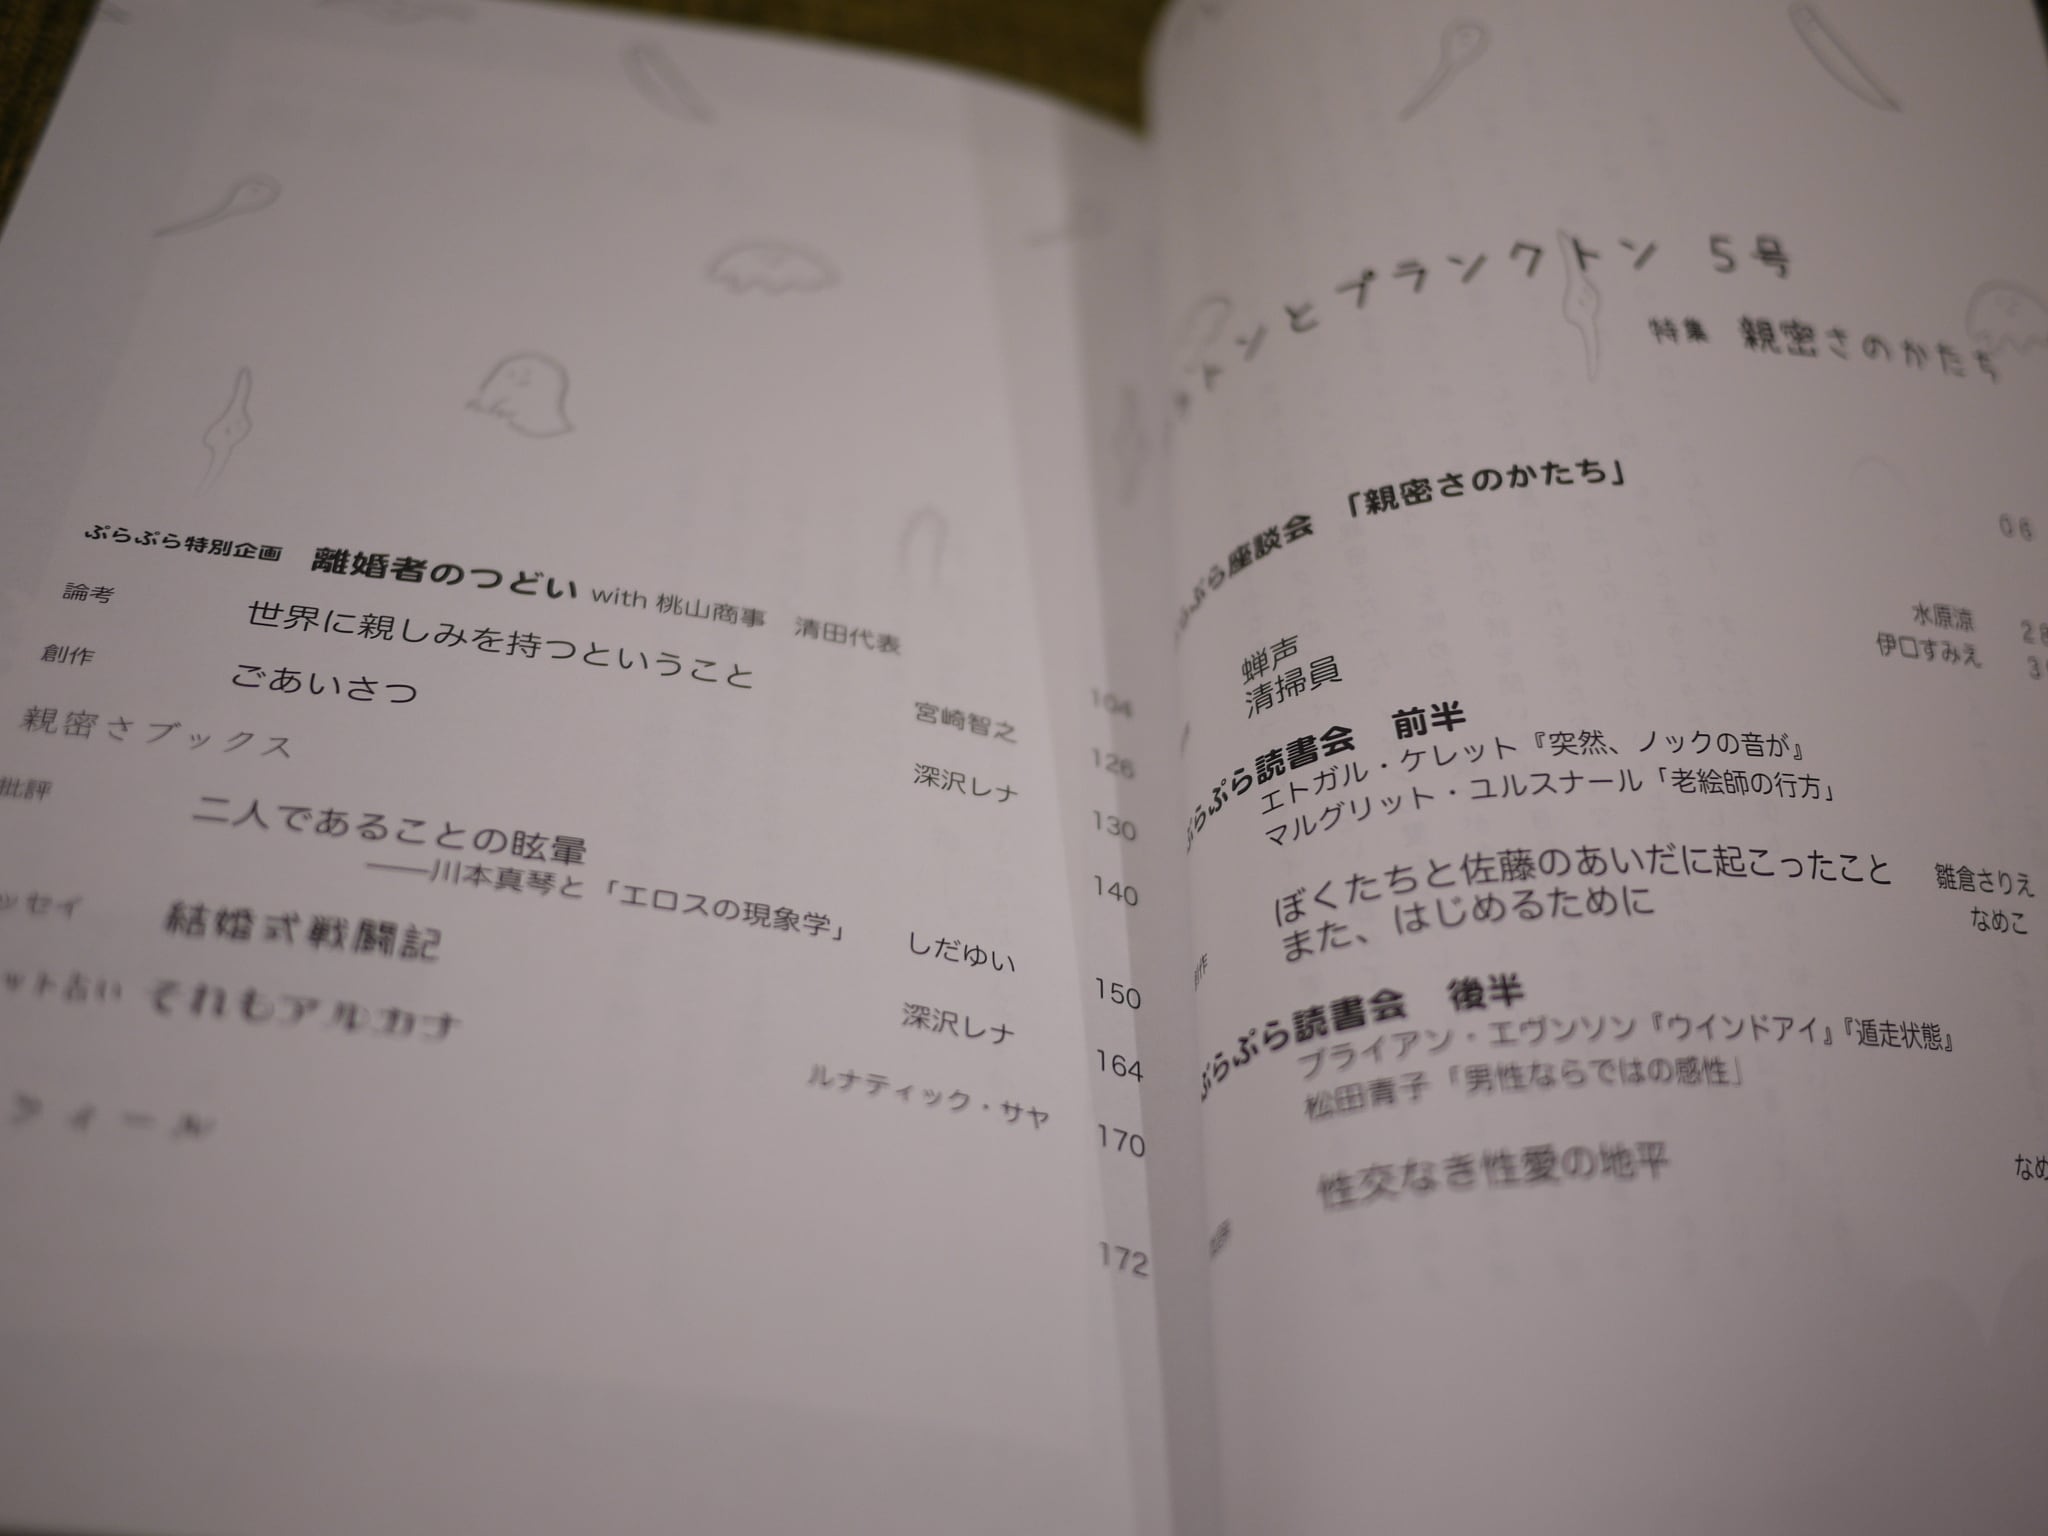 ぷらぷら特別企画　離婚者のつどい with 桃山商事　清田代表　104
論考　世界に親しみを持つということ　宮崎智之　126
創作　ごあいさつ　深沢レナ　130
親密さブックス　140
批評　二人であることの眩暈
――川本真琴と「エロスの現象学」　しだゆい　150
ッセイ　結婚式戦闘記　深沢レナ　164
ット占い　それもアルカナ　ルナティック・サヤ　170
172
トンとプランクトン　5号
特集　親密さのかたち
ぷら座談会　「親密さのかたち」　06
蝉声　水原涼
清掃員　伊口すみえ
ぷらぷら読書会　前半
エトガル・ケレット『突然、ノックの音が』
マルグリット・ユルスナール「老絵師の行方」
ぼくたちと佐藤のあいだに起こったこと　雛倉さりえ
創作　また、はじめるために　なめこ
ぷらぷら読書会　後半
ブライアン・エヴンソン『ウインドアイ』『遁走状態』
松田青子「男性ならではの感性」
性交なき性愛の地平　なめ